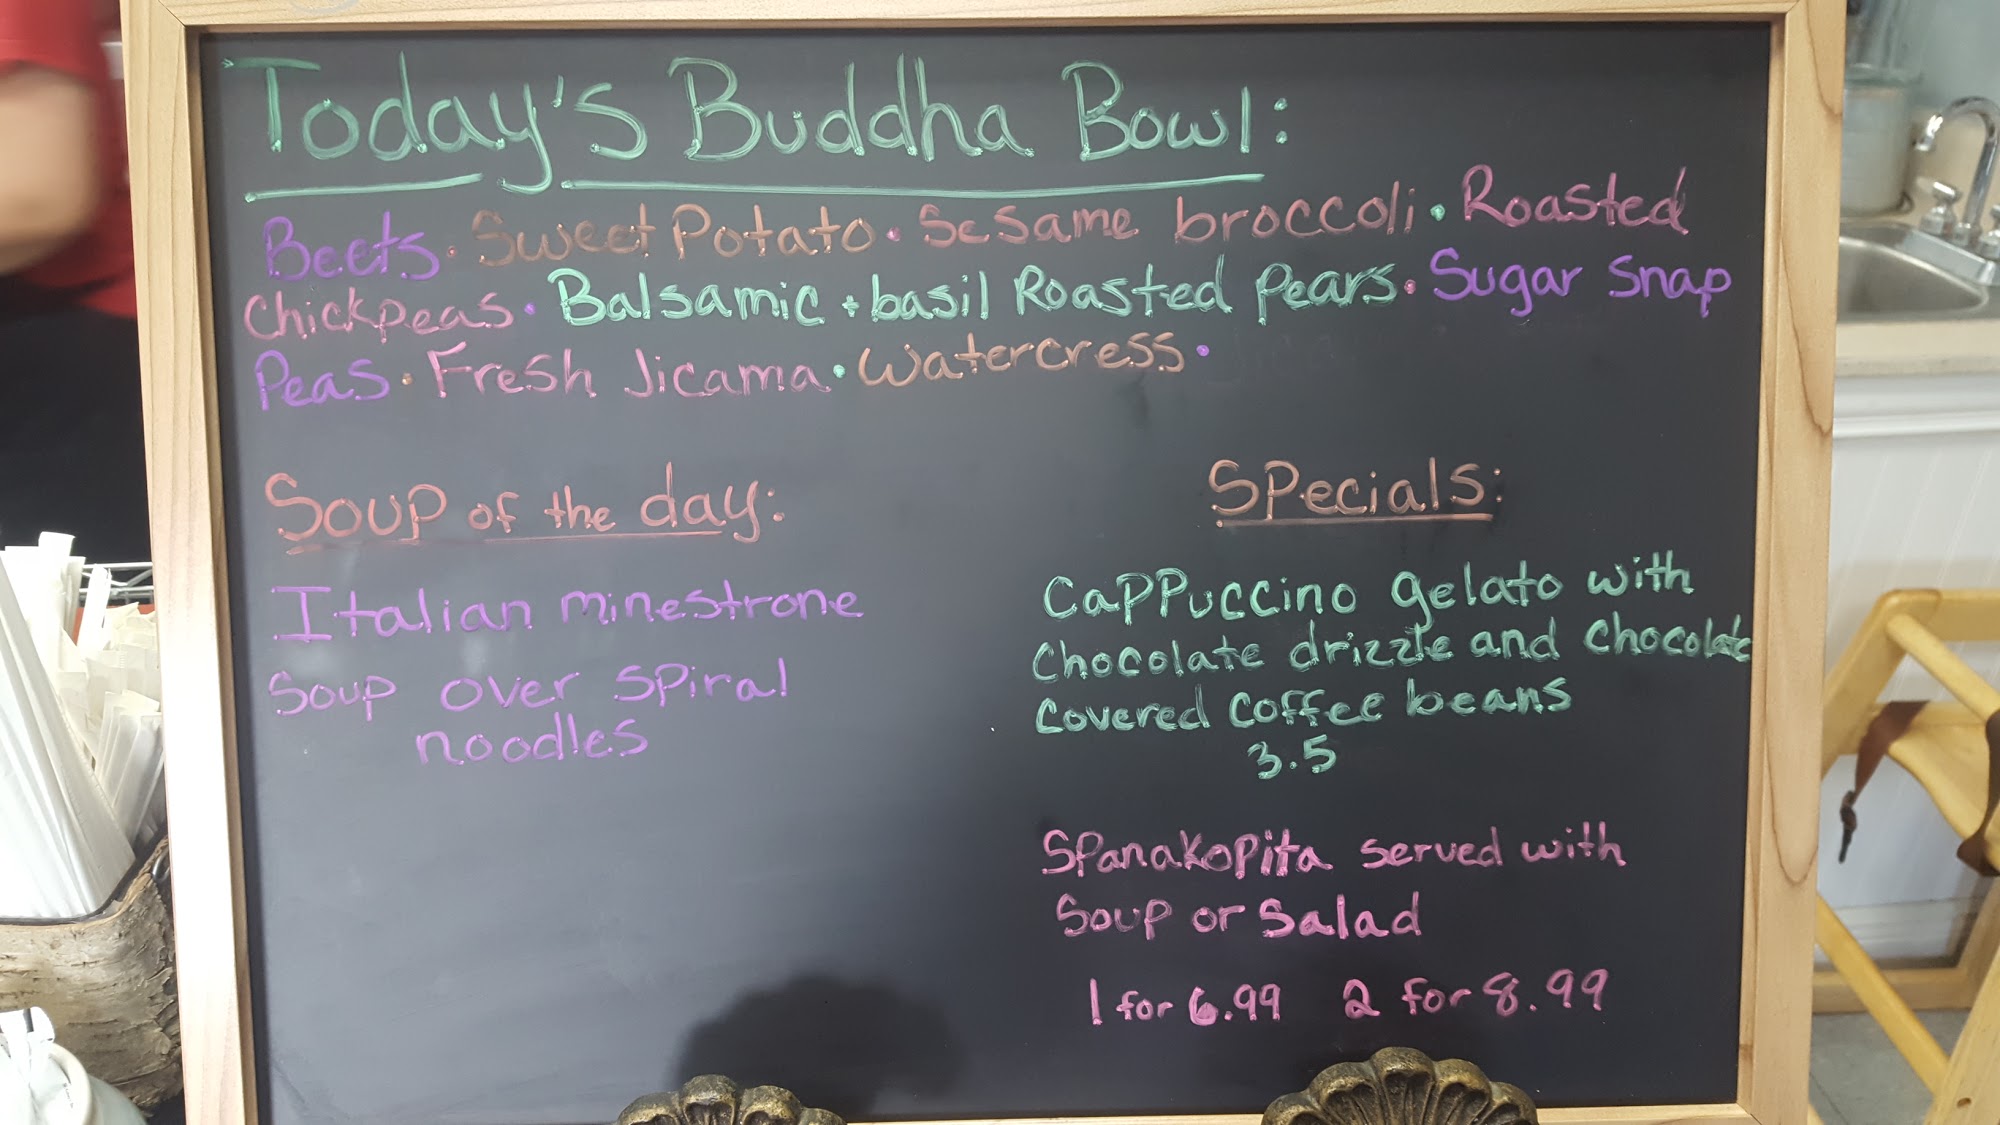 Today's Buddha Bowl:
Beets · Sweet Potato · Sesame broccoli · Roasted
Chickpeas · Balsamic + basil Roasted Pears · Sugar Snap
Peas · Fresh Jicama · Watercress ·
Soup of the day:
Italian minestrone
Soup over spiral
noodles
Specials:
Cappuccino gelato with
Chocolate drizzle and chocolate
covered coffee beans
3.5
Spanakopita served with
Soup or salad
1 for 6.99 2 for 8.99